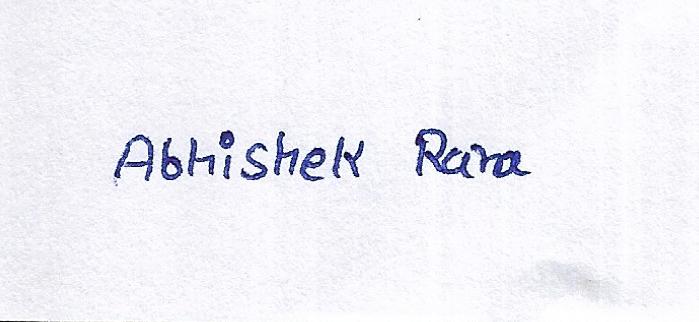 Abhishek Rana